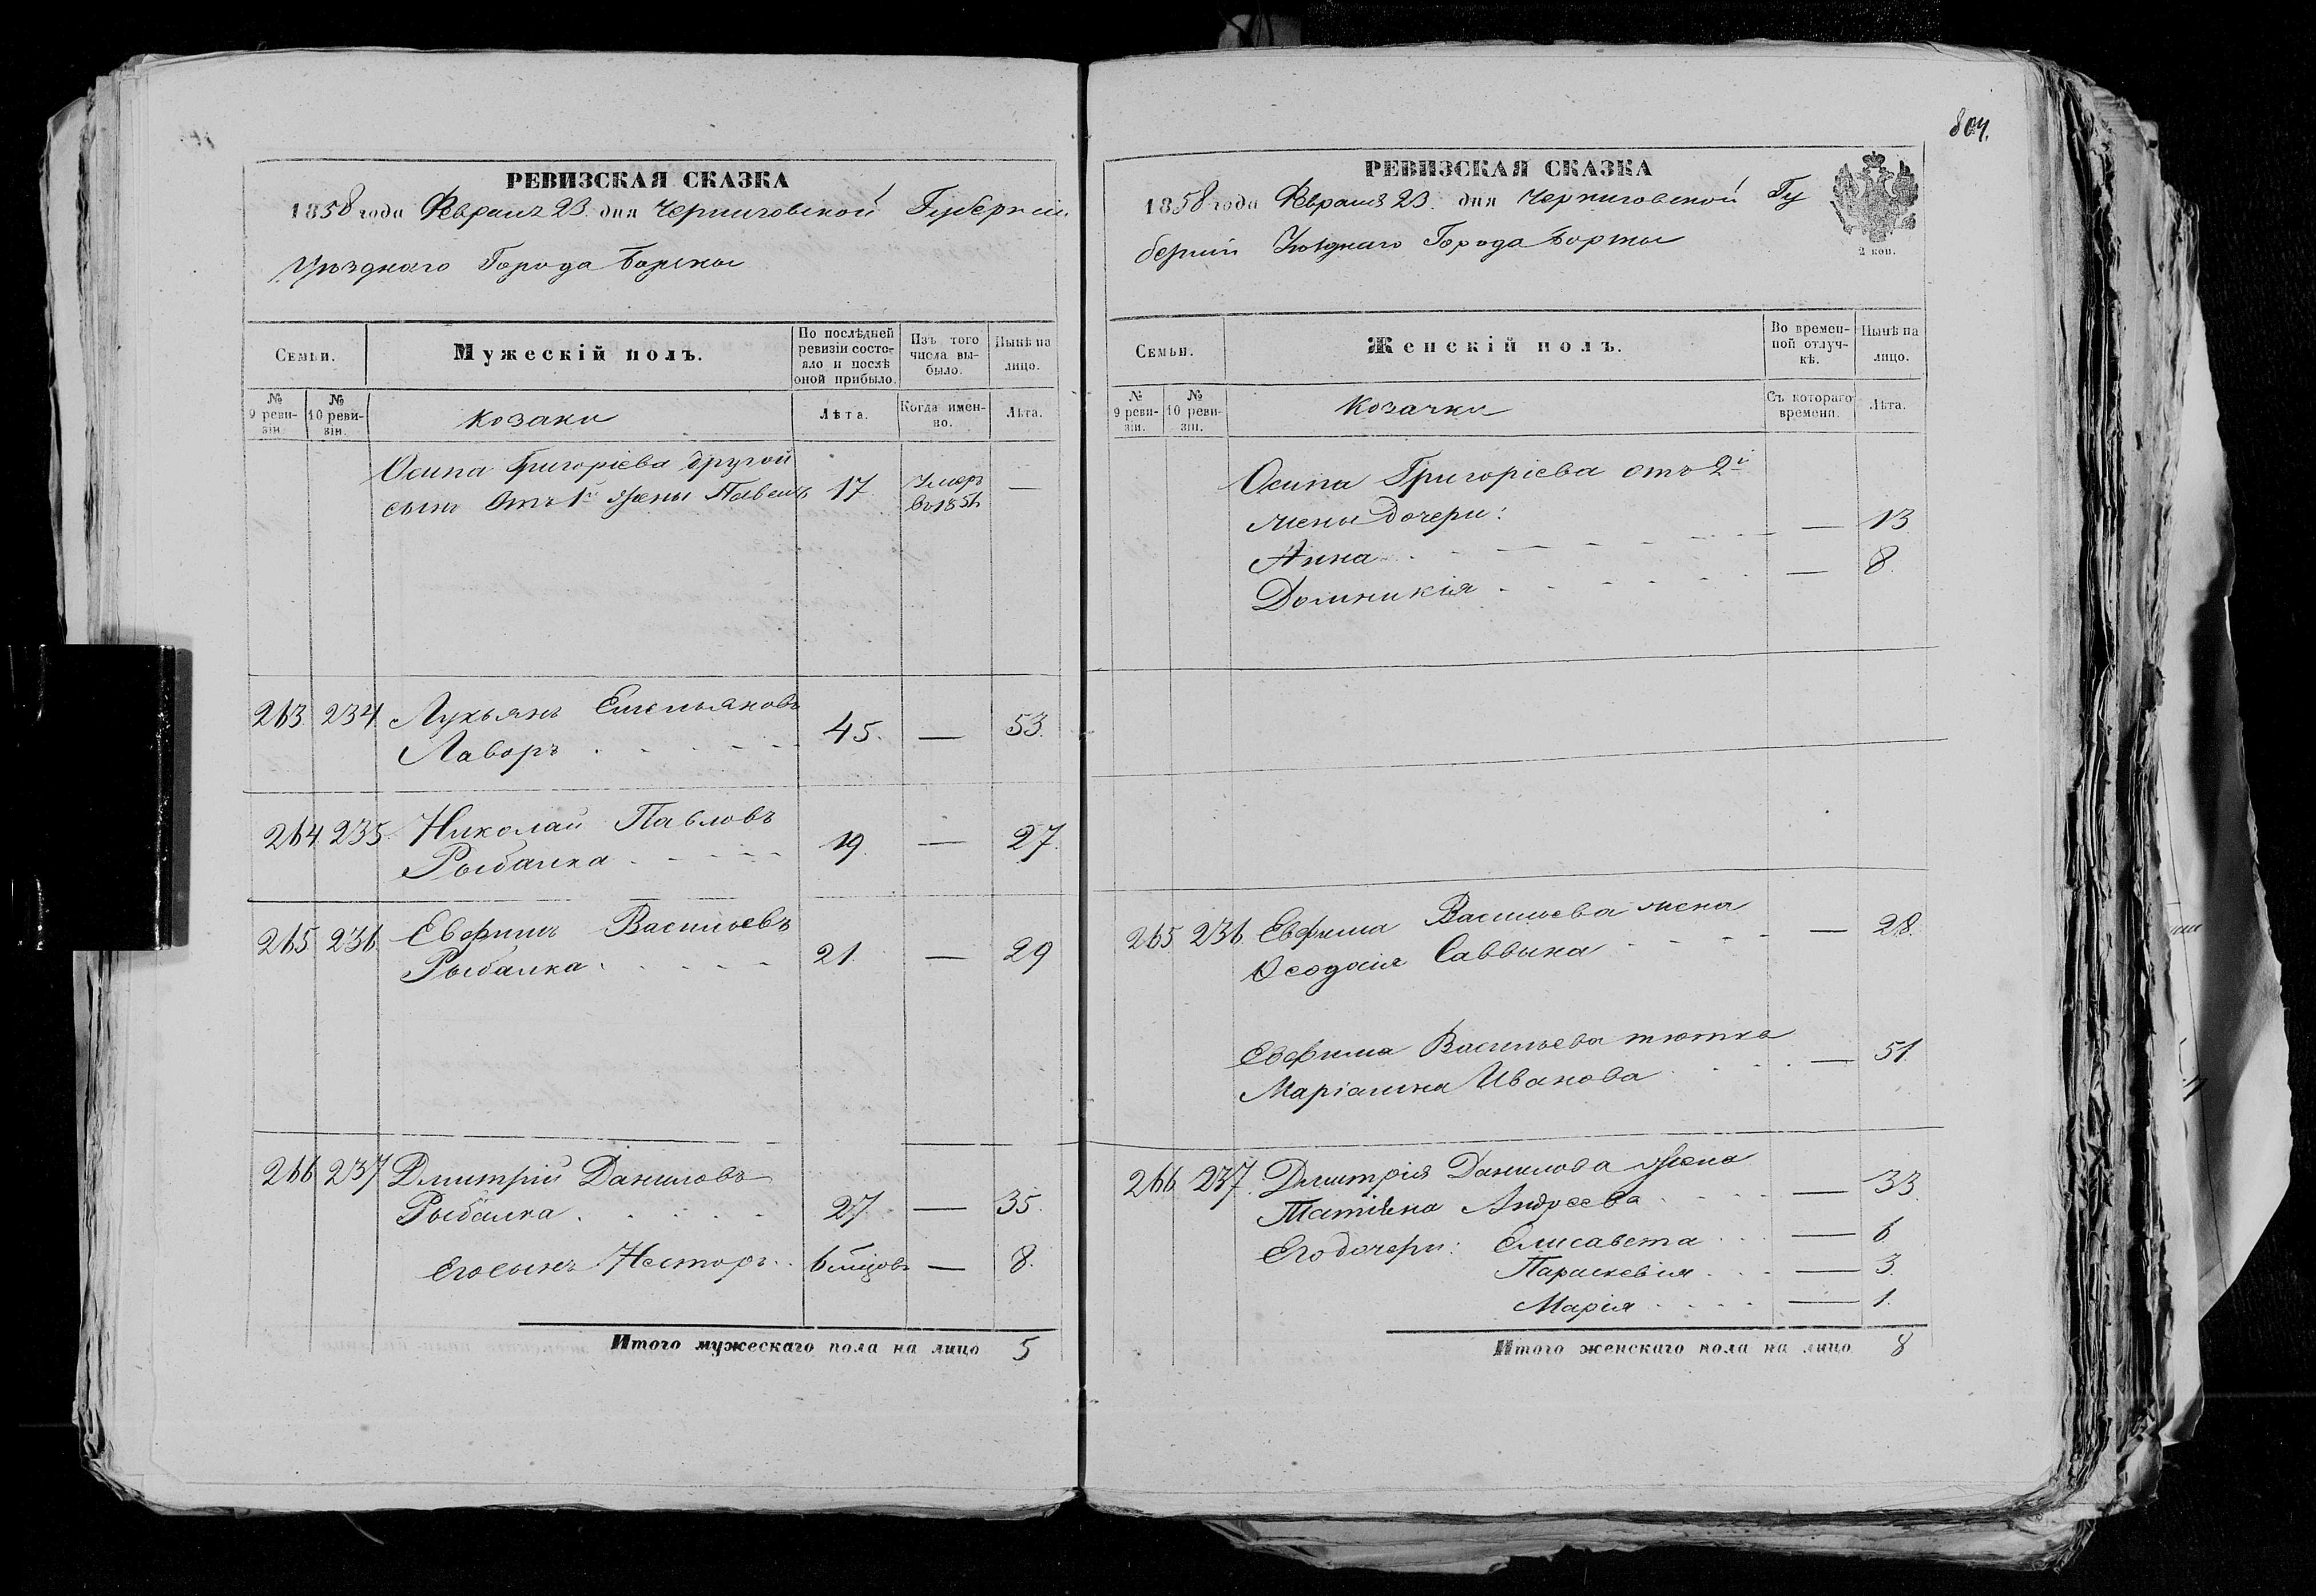 РЕВИЗСКАЯ СКАЗКА
1858 года Февраля 23. дня Черниговской Губерніи
Уѣзднаго Города Борзны
Семьи.
Мужескій полъ.
По послѣдней ревизіи состояло и послѣ оной прибыло.
Изъ того числа выбыло.
Нынѣ на лицо.
№ 9 ревизіи.
№ 10 ревизіи.
Козаки
Лѣта.
Когда именно.
Лѣта.
Осипа Григоріева другой
сынъ Отъ 1й жены Павелъ 17 Умеръ въ 1856 —
263. 234. Лукьянъ Емельяновъ
Лаворъ 45. — 53.
264. 235. Николай Павловъ
Рыбалка 19. — 27.
265 236 Евфимъ Васильевъ
Рыбалка 21. — 29
266 237 Дмитрій Даниловъ
Рыбалка 27 — 35.
Его сынъ Несторъ 6 мѣсцовъ — 8.
Итого мужескаго пола на лицо 5
804.
РЕВИЗСКАЯ СКАЗКА
1858 года Февраля 23. дня Черниговской Гу
берніи Уѣзднаго Города Борзны
2 коп.
Семьи.
Женскій полъ.
Во временной отлучкѣ.
Нынѣ на лицо.
№ 9 ревизіи.
№ 10 ревизіи.
Козачки
Съ котораго времени.
Лѣта.
Осипа Григоріева отъ 2й
жены дочери:
Анна — 13
Домникія — 8.
265 236. Евфима Васильева жена
Ѳеодосія Саввина — 28.
Евфима Васильева тютка
Маріанна Иванова — 51
266. 237. Дмитрія Данилова жена
Татіана Андреева — 33.
Его дочери: Елисавета — 6
Параскевія — 3.
Марія — 1.
Итого женскаго пола на лицо 8